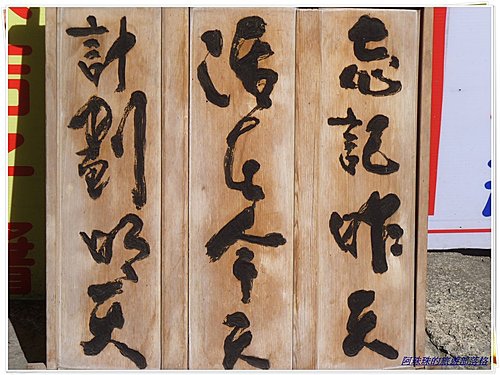 忘記昨天
活在今天
計劃明天
阿珠珠的旅遊部落格